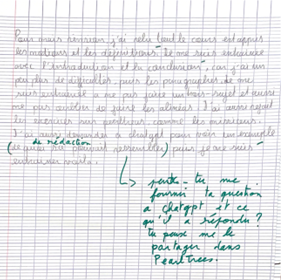 Pour mieux réviser, j'ai relu tout le cours et appris
les notions et les définitions. Je me suis entrainée
avec l'introduction et la conclusion, car j'ai un
peu plus de difficultés, puis les paragraphes. Je me
suis entrainée a ne pas faire un hors-sujet et aussi
me pas oublier de faire les alinéas. J'ai aussi refait
les exercices
J'ai aussi demander a chatgpt pour voir un exemple
de rédaction
(ce quoi ça pouvait ressembler) puis je me suis
entrainée
peux-tu me
fournir ta question
a Chatgpt et ce
qu'il a répondu?
Tu peux me le
partager dans
PearlTrees.